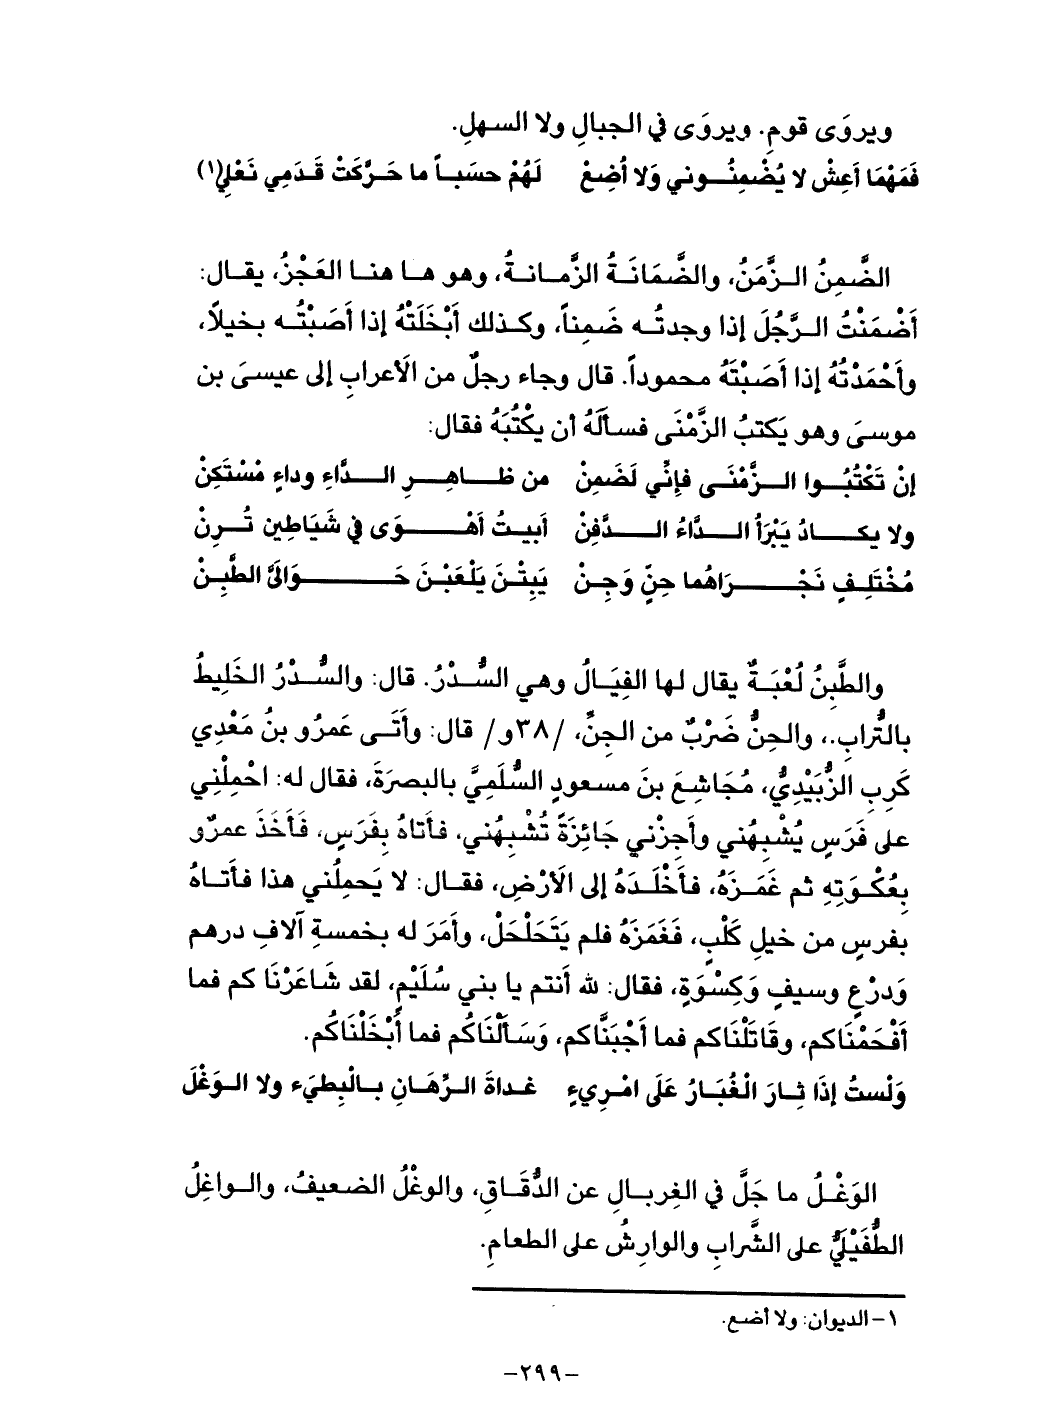 ويروَى قومِ. ويروَى في الجبالِ ولا السهلِ.
فَمَهْمَا أَعِشْ لا يُضْمِنُوني وَلا أُضِعْ لَهُمْ حسَباً ما حَرَّكَتْ قَدَمِي نَعْلِي(١)
الضَّمِنُ الزَّمَنُ، والضَّمَانَةُ الزَّمانةُ، وهو ها هنا العَجْزُ، يقال:
أَضْمَنْتُ الرَّجُلَ إذا وجدتُه ضَمِناً، وكذلك أَبْخَلَتْهُ إذا أَصَبْتُه بخيلاً،
وأَحْمَدْتُهُ إذا أَصَبْتَهُ محموداً. قال وجاء رجلٌ من الأعرابِ إلى عيسىَ بن
موسىَ وهو يَكتبُ الزَّمْنَى فسأَلَهُ أن يكْتُبَهُ فقال:
إنْ تَكْتُبُوا الزَّمْنَى فإنِّي لَضَمِنْ من ظاهِرِ الدَّاءِ وداءٍ مْسْتَكِنْ
ولا يكادُ يَبْرَأُ الدَّاءُ الدَّفِنْ أبيتُ أَهْوَى في شَيَاطِين تُرِنْ
مُخْتَلِفٍ نَجْرَاهُما حِنٍّ وَجِنْ يَبِتْنَ يَلْعَبْنَ حَوَالىَّ الطَّبِنْ
والطَّبِنُ لُعْبَةٌ يقال لها الفِيَالُ وهي السُّدْرُ. قال: والسُّدْرُ الخَلِيطُ
بالتُّرابِ.، والحِنُّ ضَرْبٌ من الجِنِّ، /٣٨و/ قال: وأَتَى عَمرُو بنُ مَعْدِي
كَرِبِ الزُّبَيْدِيُّ، مُجَاشِعَ بنَ مسعودٍ السُّلَمِيَّ بالبصرَةَ، فقال له: احْمِلْنِي
على فَرَسٍ يُشْبِهُني وأَجِزْني جَائِزَةً تُشْبِهُني، فأتاهُ بِفَرَسٍ، فَأَخَذَ عمرٌو
بِعُكْوَتِهِ ثم غَمَزَهُ، فأَخْلَدَهُ إلى الأَرْضِ، فقال: لا يَحمِلُني هذا فأتاهُ
بفرسٍ من خيلِ كَلْبٍ، فَغَمَزَهُ فلم يَتَحَلْحَلْ، وأَمَرَ له بخمسةِ آلافِ درهم
وَدرْعٍ وسيفٍ وَكِسْوَةٍ، فقال: لله أَنتم يا بني سُلَيْمٍ، لقد شَاعَرْنَا كم فما
أَفْحَمْنَاكم، وقَاتَلْنَاكم فما أَجْبَنَّاكم، وَسَأَلْنَاكُم فما أَبْخَلْنَاكُم.
وَلْستُ إذَا ثارَ الْغُبَارُ عَلَى امْرِيءٍ غداةَ الرِّهَانِ بالْبِطيَء ولا الوَغْلَ
الوَغْلُ ما جَلَّ في الغِربالِ عن الدُّقَاقِ، والوغْلُ الضعيفُ، والواغِلُ
الطُّفَيْلِيُّ على الشَّرابِ والوارِشُ على الطعامِ.
١- الديوان: ولا أضع.
-٢٩٩-